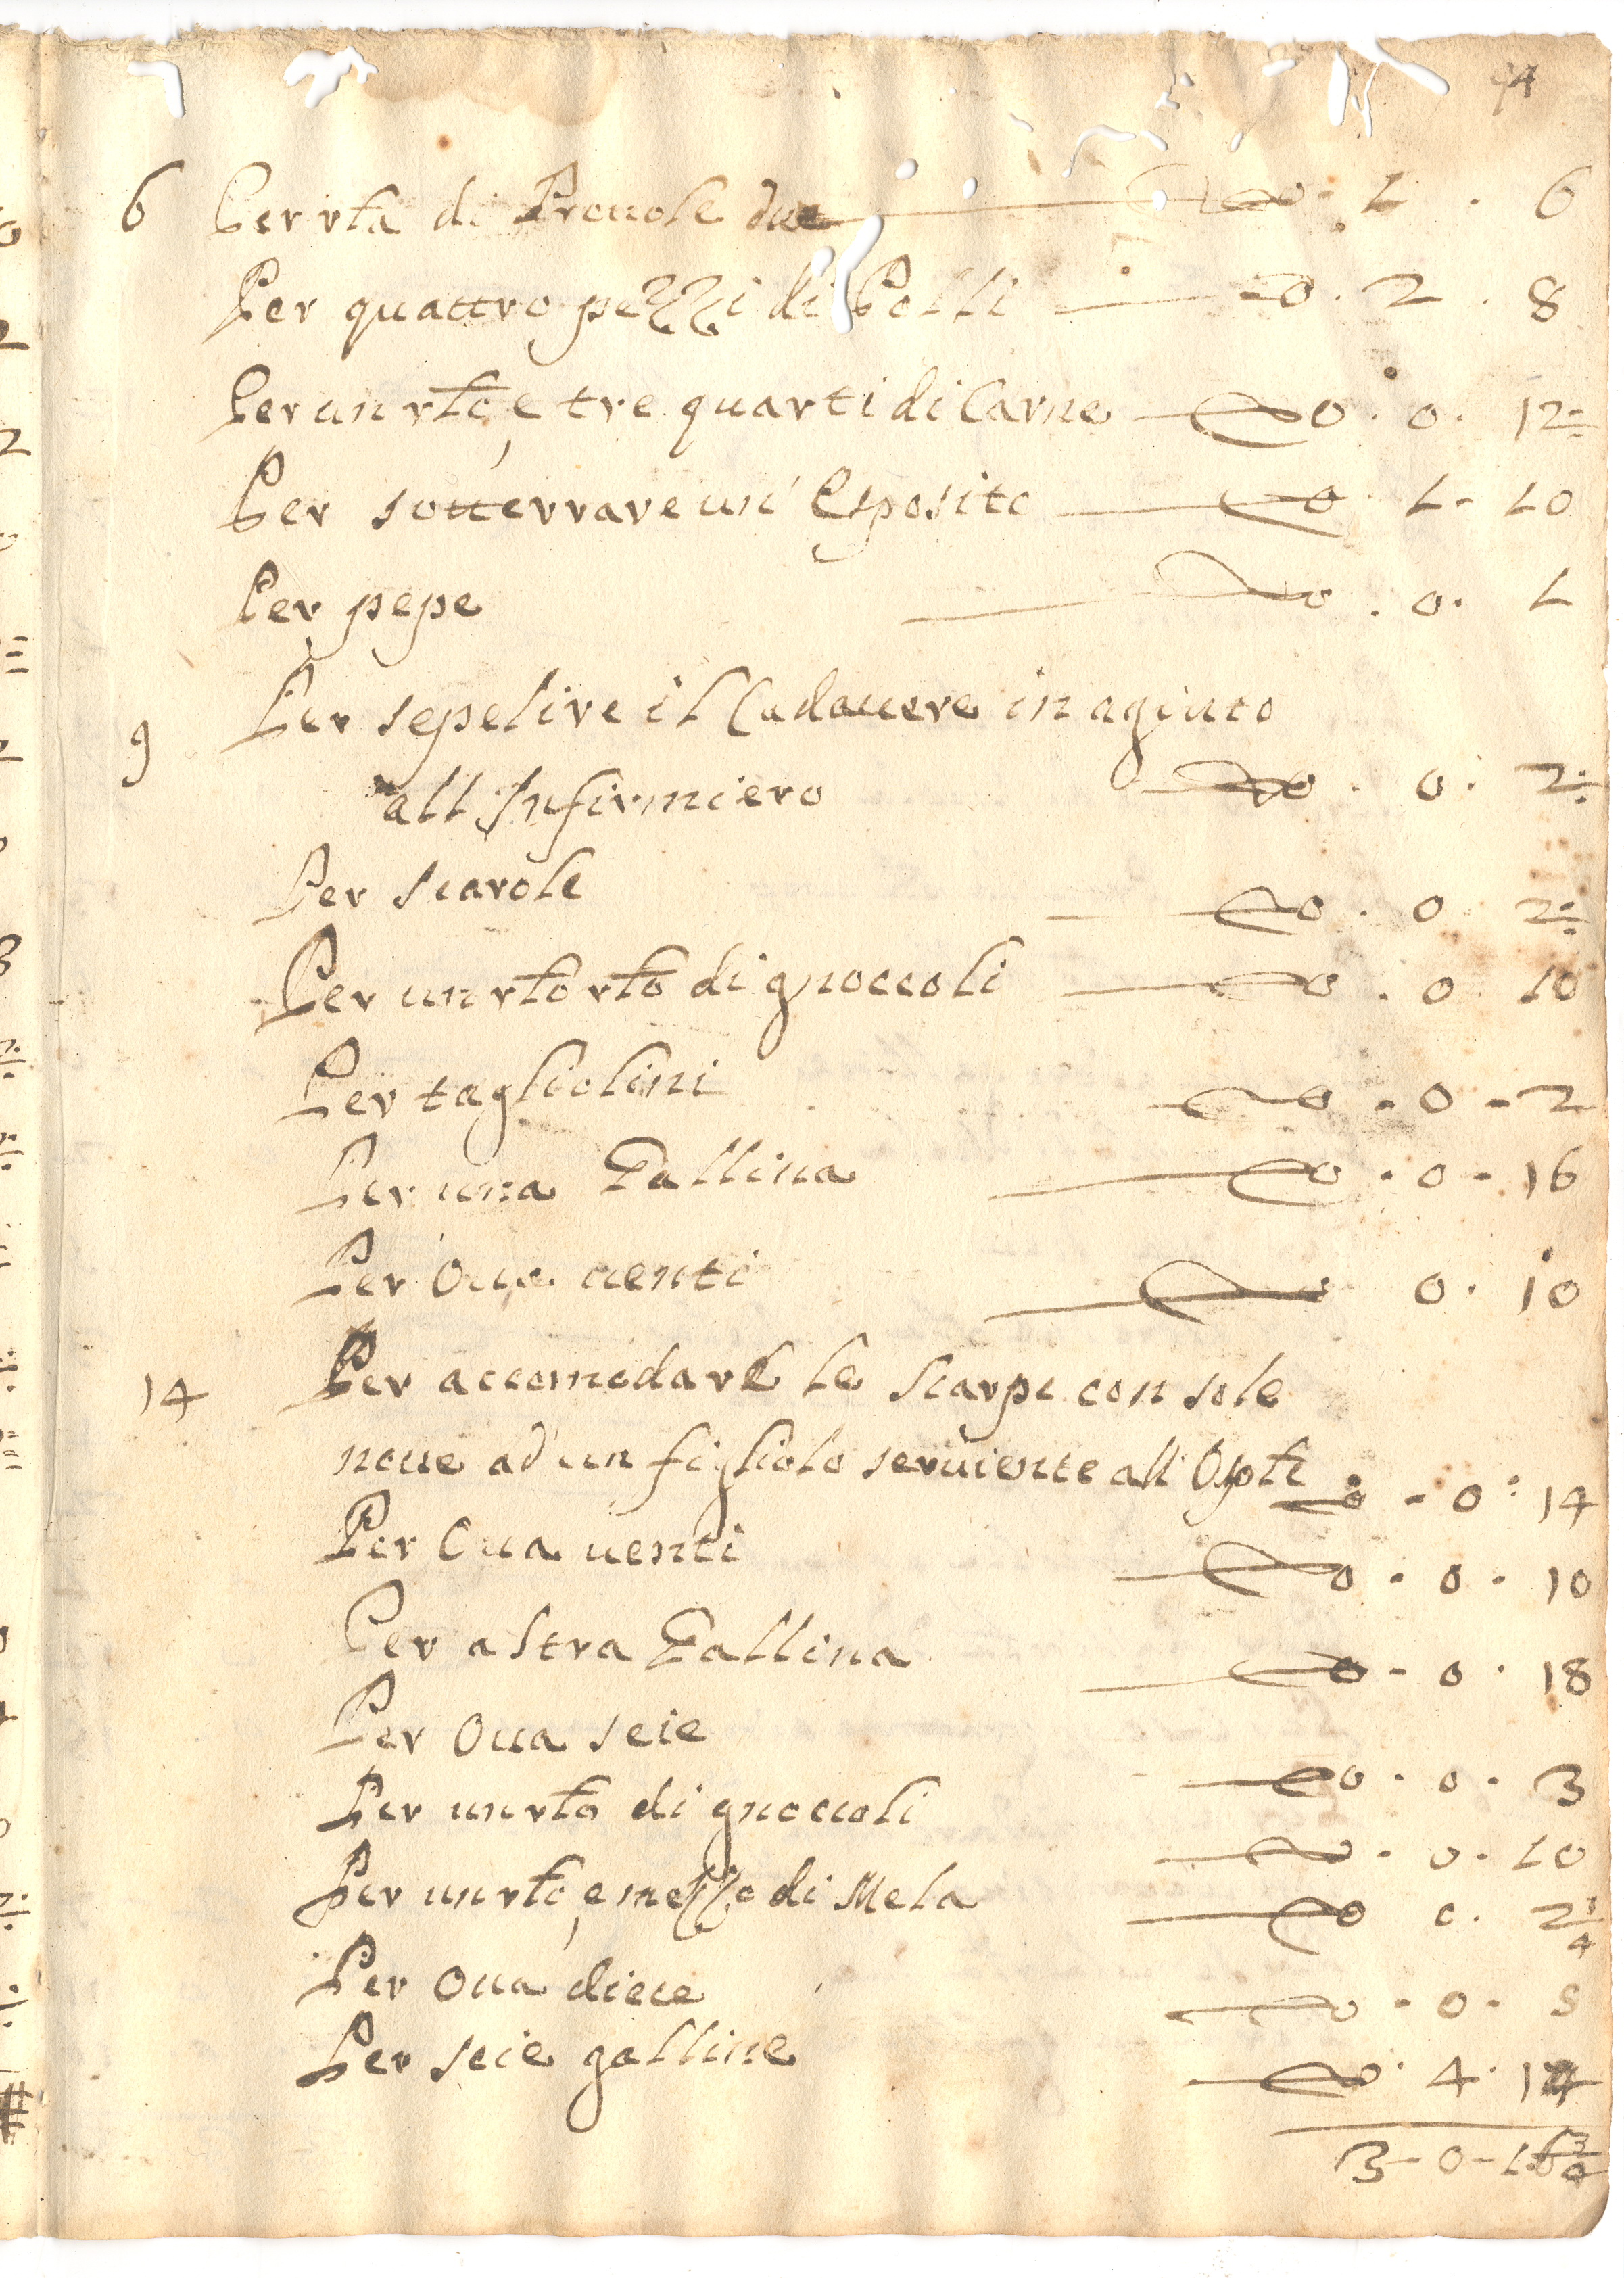 74
6 Per rta di Prouole due 0 · 1 · 6
Per quattro pezzi di Polli 0 · 2 · 8
Per un rto, e tre quarti di Carne 0 · 0 · 12 ÷
Per sotterrare un' Esposito 0 · 1 - 10
Per pepe 0 · 0 · 1
9 Per sepelire il Cadauere in agiuto
all Infirmiero 0 · 0 · 2 ÷
Per scarole 0 · 0 2 ÷
Per un rto rto di gnoccoli 0 · 0 10
Per tagliolini 0 - 0 - 2
Per una Gallina 0 · 0 - 16
Per Oua uenti 0 · 10
14 Per accomodare le scarpe con sole
noue ad un figliolo seruiente all' Osple 0 - 0 : 14
Per Oua uenti 0 - 0 - 10
Per altra Gallina 0 - 0 · 18
Per Oua seie 0 · 0 · 3
Per un rto di gnoccoli 0 · 0 · 10
Per un rto, e mezzo di Mela 0 0 · 2 1/4
Per Oua diece 0 - 0 - 5
Per seie galline 0 · 4 · 14
3 - 0 - 16 3/4